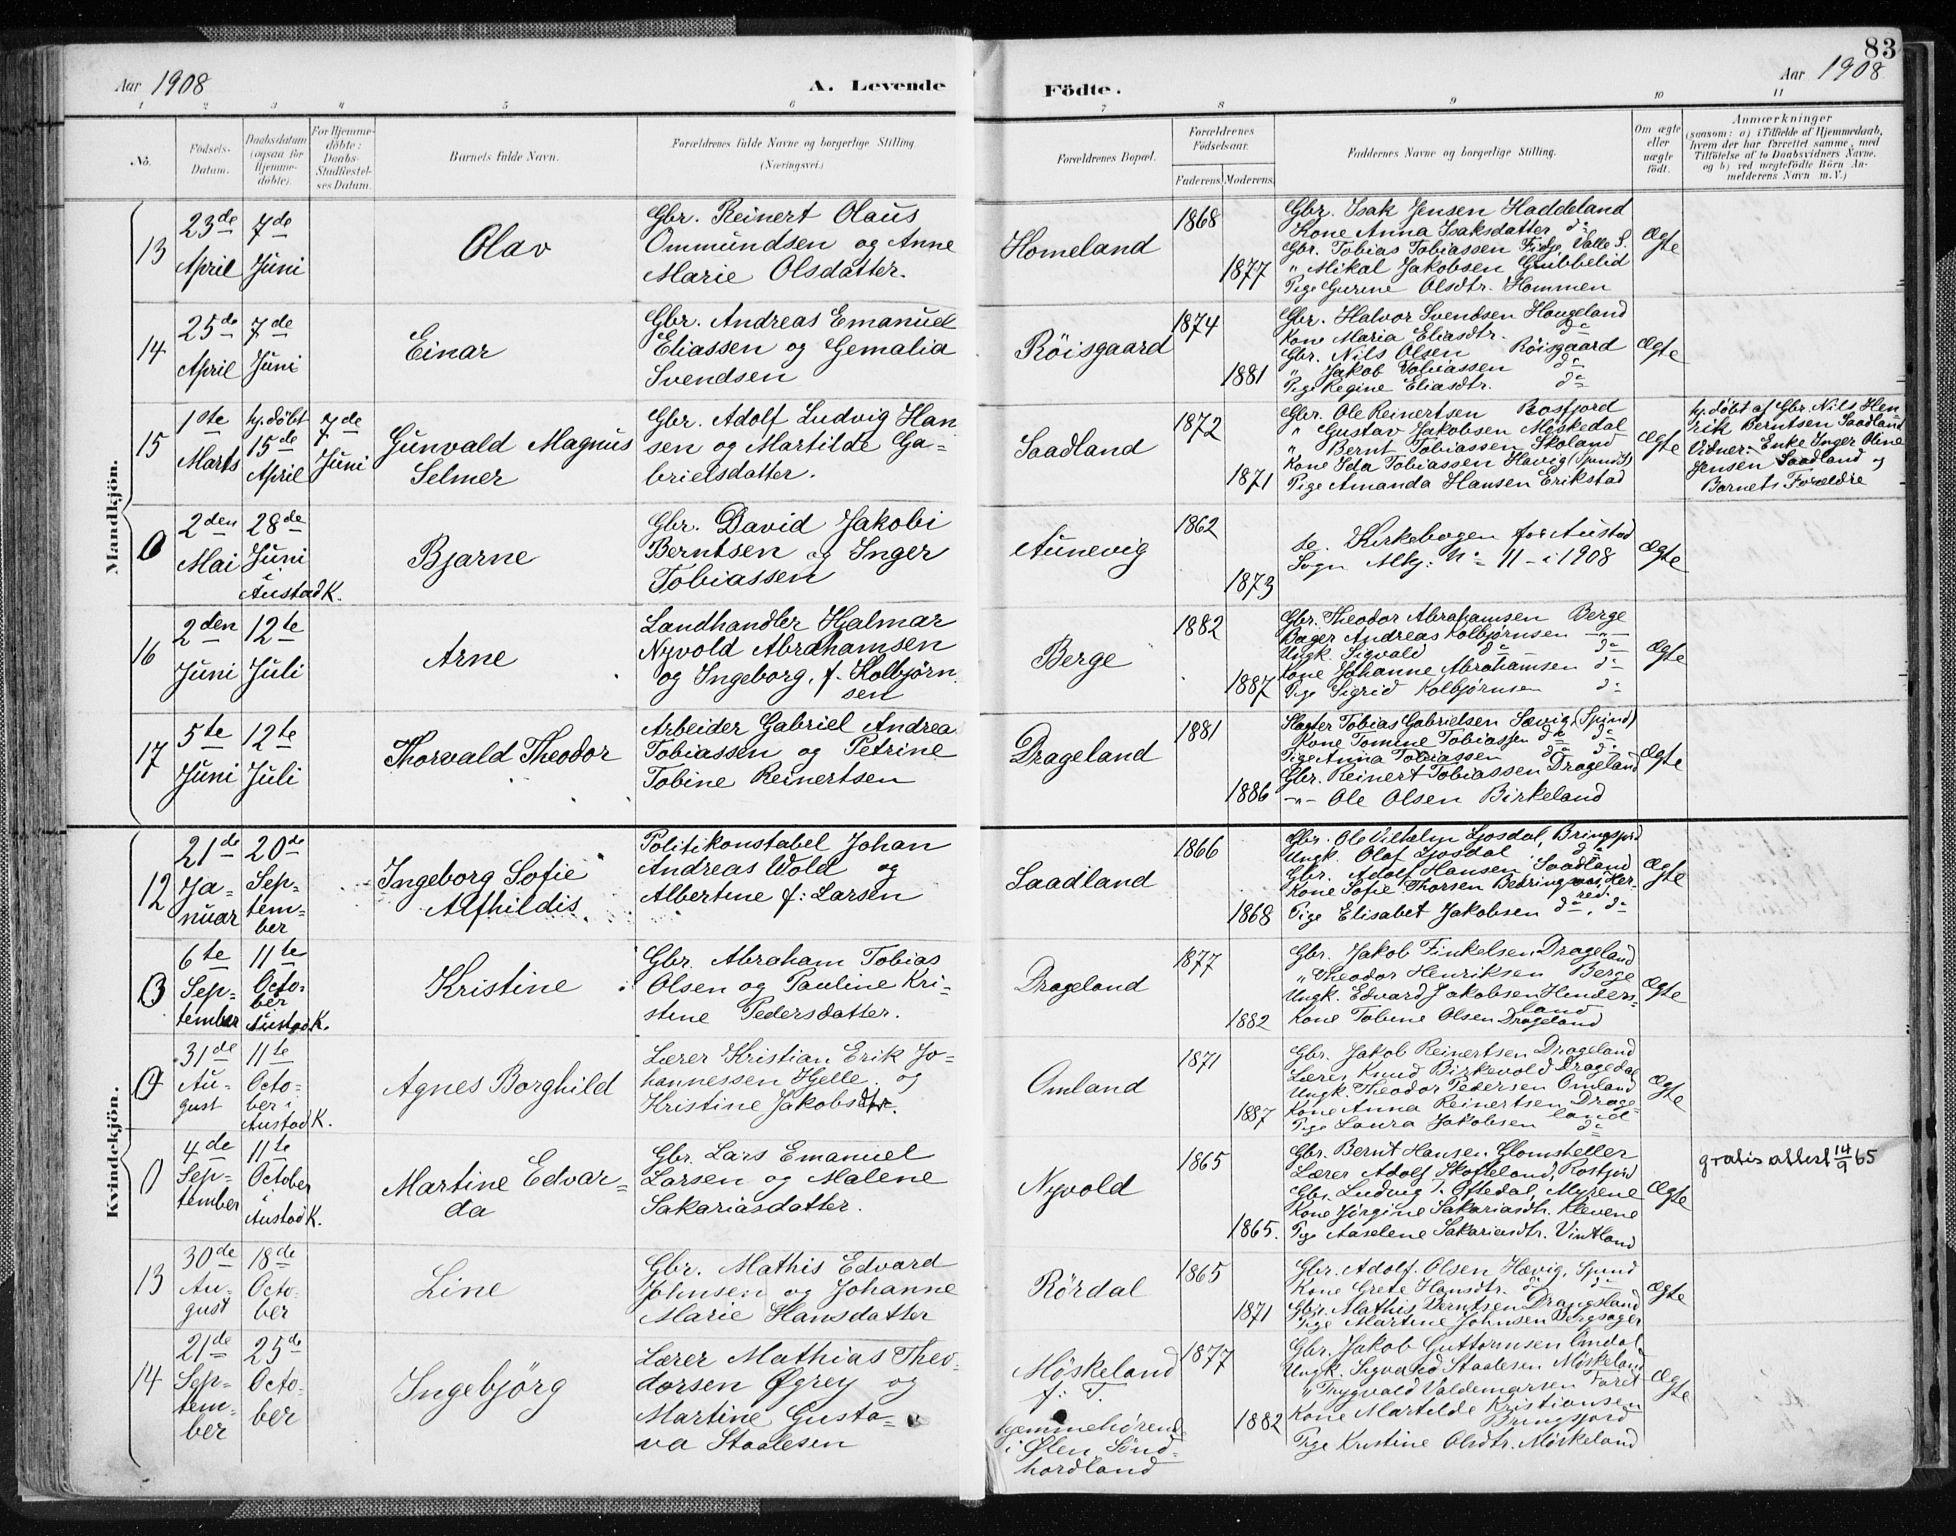 83
Aar 1908
A. Levende
Födte.
Aar 1908
1 2 3 4 5 6 7 8 9 10 11
No.
Födsels-
Datum.
Daabsdatum
(ogsaa for
Hjemme-
döbte).
For Hjemme-
döbte:
Daabs-
Stadfæstel-
ses Datum.
Barnets fulde Navn.
Forældrenes fulde Navne og borgerlige Stilling
(Næringsvei.)
Forældrenes Bopæl.
Forældrenes
Födselsaar.
Faderens. Moderens.
Faddernes Navne og borgerlige Stilling.
Om ægte
eller
uægte
födt.
Anmærkninger
(saasom: a) i Tilfælde af Hjemmedaab,
hvem der har forrettet samme, med
Tilföielse af to Daabsvidners Navne,
og b) ved uægtefödte Börn An-
melderens Navn m. V.)
Mandkjön.
13
23de
April
7de
Juni
Olav
Gbr. Reinert Olaus
Ommundsen og Anne
Marie Olsdatter.
Homeland
1868
1877
Gbr. Isak Jensen Haddeland
Kone Anna Isaksdatter do
Gbr. Tobias Tobiassen Fidje, Valle S.
" Mikal Jakobsen Gribbelid
Pige Gurine Olsdtr. Hommen
Ægte
14
25de
April
7de
Juni
Einar
Gbr. Andreas Emanuel
Eliassen og Gemalia
Svendsen
Röisgaard
1874
1881
Gbr. Halvor Svendsen Haugeland
Kone Maria Eliasdtr. do
Gbr. Nils Olsen Röisgaard
" Jakob Tobiassen do
Pige Regine Eliasdtr. do
Ægte
15
1ste
Marts
hj.döbt
15de
April
7de
Juni
Gunvald Magnus
Selmer
Gbr. Adolf Ludvig Han
sen og Martilde Ga-
brielsdatter.
Saadland
1872
1871
Gbr. Ole Reinertsen Rosfjord
" Gustav Jakobsen Möskedal
" Bernt Tobiassen Skoland
Kone Ida Tobiassen Hävig (Spind S)
Pige Amanda Hansen Erikstad
Ægte
hj.döbt af Gbr. Nils Hen-
rik Berntsen Saadland
Vidner: Enke Inger Oline
Jensen Saadland og
Barnets Forældre
0
2den
Mai
28de
Juni
i
Austad K.
Bjarne
Gbr. David Jakobi
Berntsen og Inger
Tobiassen
Aunevig
1862
1873
se. Kirkebogen for Austad
Sogn Mkj: No 11 - i 1908
Ægte
16
2den
Juni
12te
Juli
Arne
Landhandler Hjalmar
Nyvold Abrahamsen
og Ingeborg, f. Kolbjørn
sen
Berge
1882
1887
Gbr. Theodor Abrahamsen Berge
Bager Andreas Kolbjørnsen —"—
Ungk. Sigvald do do
Kone Johanne Abrahamsen do
Pige Sigrid Kolbjørnsen do
Ægte
17
5te
Juni
12te
Juli
Thorvald Theodor
Arbeider Gabriel Andrea
Tobiassen og Petrine
Tobine Reinertsen
Drageland
1881
1886
Slagter Tobias Gabrielsen Sævig (Spind)
Kone Tomine Tobiassen do do
Pige Anna Tobiassen do do
Gbr. Reinert Tobiassen Drageland
—"— Ole Olsen Birkeland
Ægte
Kvindekjön.
12
21de
Ja-
nuar
20de
Sep-
tem-
ber
Ingeborg Sofie
Alfhildis
Politikonstabel Johan
Andreas Wold og
Albertine f: Larsen
Saadland
1866
1868
Gbr. Ole Vilhelm Ljosdal, Bringsjord
Ungk. Olaf Ljosdal do
Gbr. Adolf Hansen Saadland
Kone Sofie Thorsen Bedringvaas, Her-
red.
Pige Elisabet Jakobsen do, do
Ægte
0
6te
Sep-
tember
11te
Octo-
ber
Austad K.
Kristine
Gbr. Abraham Tobias
Olsen og Pauline Kri-
stine Pedersdatter.
Drageland
1877
1882
Gbr. Jakob Finkelsen Drageland
" Theodor Henriksen Berge
Ungk. Edvard Jakobsen Henders-
land
Kone Tobine Olsen Drageland
Ægte
0
31de
Au-
gust
11te
Octo-
ber i
Austad K.
Agnes Borghild
Lærer Kristian Erik Jo-
hannessen Hjelle og
Kristine Jakobsdtr.
Omland
1871
1887
Gbr. Jakob Reinertsen Drageland
Lærer Knud Birkevold Dragedal
Ungk. Theodor Pedersen Omland
Kone Anna Reinertsen Drage-
land
Pige Laura Jakobsen do
Ægte
0
4de
Sep-
tember
11te
October
i
Austad K.
Martine Edvar-
da
Gbr. Lars Emanuel
Larsen og Malene
Sakariasdatter.
Nyvold
1865
1865.
Gbr. Bernt Hansen Glomsheller
Lærer Adolf Skofteland, Rosfjord
Gbr. Ludvig T. Oftedal, Myrene
Kone Jörgine Sakariasdtr. Klevene
Pige Aaselene Sakariasdtr. Vintland
Ægte
gratis attest 14/9 65
13
30de
Au-
gust
18de
Octo-
ber
Line
Gbr. Mathis Edvard
Johnsen og Johanne
Marie Hansdatter
Rördal
1865
1871
Gbr. Adolf. Olsen Hævig, Spind
Kone Grete Hansdtr. do do
Gbr. Mathis Berntsen Drangsland
Pige Martine Johnsen Bergsager
Ægte
14
21de
Sep-
tem-
ber
25de
Octo-
ber
Ingebjörg
Lærer Mathias Theo-
dorsen Øgrey og
Martine Gusta-
va Staalesen
Möskeland
f: T.
hjemmehörend
i Ølen, Sönd-
hordland
1877
1882
Gbr. Jakob Guttormsen Omdal
Ungk. Sigvald Staalesen Möskeland
" Thygvald Valdemarsen Faret
Kone Martilde Kristiansen
Bringsjord
Pige Kristine Olsdtr. Möskeland
Ægte